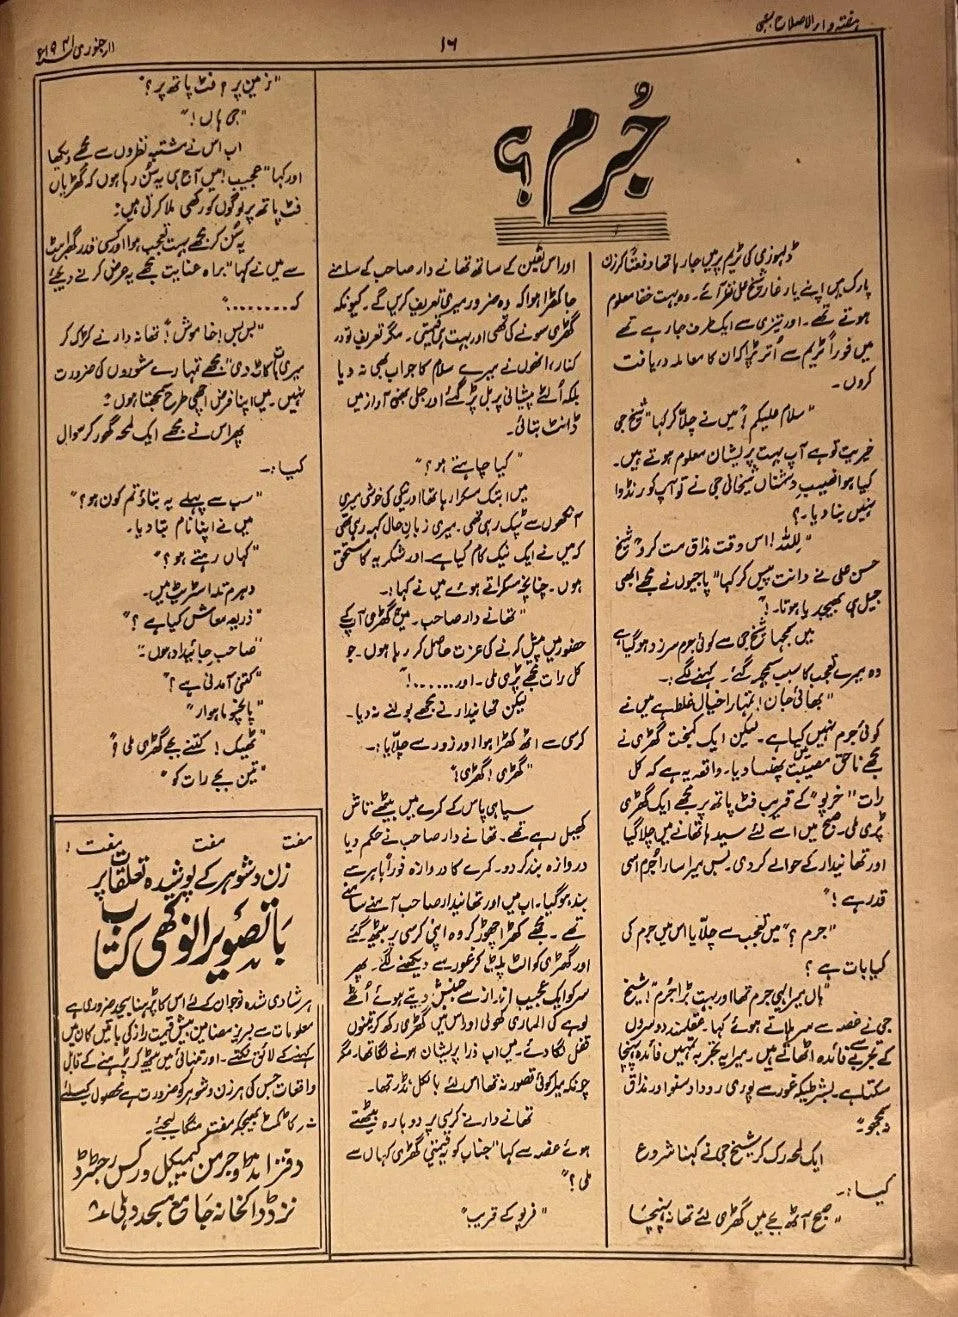 ہفتہ وار الاصلاح بمبئی
۱۶
۱۱ر جنوری ۱۹۳۱ء
جُرم؟
ڈلہوزی کی ٹریم پر میں جا رہا تھا دفعتاً کرزن
پارک میں اپنے یار غار شیخ حسن علی نظر آئے۔ وہ بہت خفا معلوم
ہوتے تھے۔ اور تیزی سے ایک طرف جا رہے تھے
میں فوراً ٹریم سے اُتر پڑا کہ ان کا معاملہ دریافت
کروں۔
"سلام علیکم! میں نے چلّا کر کہا" شیخ جی
خیریت تو ہے آپ بہت پریشان معلوم ہوتے ہیں۔
کیا ہوا نصیبِ دشمناں شیخانی جی نے تو آپ کو رنڈوا
نہیں بنا دیا۔؟
"للہ! اس وقت مذاق مت کرو" شیخ
حسن علی نے دانت پیس کر کہا" پاجیوں نے مجھے ابھی
جیل ہی بھیجدیا ہوتا۔!"
میں سمجھا شیخ جی سے کوئی جرم سرزد ہو گیا ہے
وہ میرے تعجب کا سبب سمجھ گئے۔ کہنے لگے:۔
"بھائی جان! تمہارا خیال غلط ہے میں نے
کوئی جرم نہیں کیا ہے۔ لیکن ایک کمبخت گھڑی نے
مجھے ناحق مصیبت میں پھنسا دیا۔ واقعہ یہ ہے کہ کل
رات "فرپو" کے قریب فٹ پاتھ پر مجھے ایک گھڑی
پڑی ملی۔ صبح میں اسے لئے سیدھا تھانے میں چلا گیا
اور تھانیدار کے حوالے کر دی۔ بس میرا سارا جُرم اسی
قدر ہے!"
"جرم؟" میں تعجب سے چلّایا اس میں جرم کی
کیا بات ہے؟
"ہاں میرا یہی جرم تھا اور بہت بڑا جُرم"! شیخ
جی نے غصہ سے سر ہلاتے ہوئے کہا۔ عقلمند دوسروں
کے تجربے سے فائدہ اٹھاتے ہیں۔ میرا یہ تجربہ تمہیں فائدہ پہنچا
سکتا ہے۔ بشرطیکہ غور سے پوری روداد سنو اور مذاق
نہ سمجھو"۔
ایک لمحہ رک کر شیخ جی نے کہنا شروع
کیا:۔
"صبح آٹھ بجے میں گھڑی لئے تھانہ پہنچا
اور اس یقین کے ساتھ تھانے دار صاحب کے سامنے
جا کھڑا ہوا کہ وہ ضرور میری تعریف کریں گے۔ کیونکہ
گھڑی سونے کی تھی اور بہت ہی قیمتی۔ مگر تعریف تو در
کنار انھوں نے میرے سلام کا جواب بھی نہ دیا
بلکہ اُلٹے پیشانی پر بل پڑ گئے اور جلی بھنی آواز میں
ڈانٹ بتائی۔
"کیا چاہتے ہو؟"
میں ابتک مسکرا رہا تھا اور نیکی کی خوشی میری
آنکھوں سے ٹپک رہی تھی۔ میری زبانِ حال کہہ رہی تھی
کہ میں نے ایک نیک کام کیا ہے۔ اور شکریہ کا مستحق
ہوں۔ چنانچہ مسکراتے ہوئے میں نے کہا:۔
"تھانے دار صاحب۔ میں گھڑی آپ کے
حضور میں پیش کرنے کی عزت حاصل کر رہا ہوں۔ جو
کل رات مجھے پڑی ملی۔ اور......!"
لیکن تھانیدار نے مجھے بولنے نہ دیا۔
کرسی سے اٹھ کھڑا ہوا اور زور سے چلّایا:۔
"گھڑی! گھڑی!"
سپاہی پاس کے کمرے میں بیٹھے تاش
کھیل رہے تھے۔ تھانے دار صاحب نے حکم دیا
دروازہ بند کر دو۔ کمرے کا دروازہ فوراً باہر سے
بند ہو گیا۔ اب میں اور تھانیدار صاحب آمنے سامنے
تھے۔ مجھے کھڑا چھوڑ کر وہ اپنی کرسی پر بیٹھ گئے
اور گھڑی کو الٹ پلٹ کر غور سے دیکھنے لگے۔ پھر
سر کو ایک عجیب انداز سے جنبش دیتے ہوئے اُٹھے
لوہے کی الماری کھولی اور اس میں گھڑی رکھ کر تینوں
قفل لگا دئے۔ میں اب ذرا پریشان ہونے لگا تھا۔ مگر
چونکہ میرا کوئی قصور نہ تھا اس لئے بالکل نڈر تھا۔
تھانے دار نے کرسی پر دوبارہ بیٹھتے
ہوئے غصہ سے کہا "جناب کو قیمتی گھڑی کہاں سے
ملی؟"
"فرپو کے قریب"
"زمین پر؟ فٹ پاتھ پر؟"
"جی ہاں!"
اب اس نے مشتبہ نظروں سے مجھے دیکھا
اور کہا "عجیب! میں آج ہی یہ سُن رہا ہوں کہ گھڑیاں
فٹ پاتھ پر لوگوں کو رکھی ملا کرتی ہیں"۔
یہ سُن کر مجھے بہت تعجب ہوا اور کسی قدر گھبراہٹ
سے میں نے کہا "براہ عنایت مجھے یہ عرض کرنے دیجئے
کہ........
"بس بس! خاموش"! تھانہ دار نے کڑک کر
میری بات کاٹ دی" مجھے تمہارے مشوروں کی ضرورت
نہیں۔ میں اپنا فرض اچھی طرح سمجھتا ہوں"۔
پھر اس نے مجھے ایک لمحہ گھور کر سوال
کیا:۔
"سب سے پہلے یہ بتاؤ تم کون ہو؟"
میں نے اپنا نام بتا دیا۔
"کہاں رہتے ہو؟"
دہرم تلہ اسٹریٹ میں۔
"ذریعہ معاش کیا ہے؟"
"صاحب جائیداد ہوں"۔
"کتنی آمدنی ہے؟"
"پانچسو ماہوار"
"ٹھیک! کتنے بجے گھڑی ملی؟"
"تین بجے رات کو"
مفت مفت مفت!
زن و شوہر کے پوشیدہ تعلقات پر
باتصویر انوکھی کتاب
ہر شادی شدہ نوجوان کے لئے اس کا پڑھنا بیحد ضروری ہے
معلومات سے لبریز مضامین بیش قیمت راز کی باتیں کان میں
کہنے کے لائق نکتے۔ اور تنہائی میں بیٹھ کر پڑھنے کے قابل
واقعات جس کی ہر زن و شوہر کو ضرورت ہے محصول کیلئے
۱ر کا ٹکٹ بھیجکر مفت منگا لیجئے۔
دفتر انڈو جرمن کیمیکل ورکس رجسٹرڈ
نزد ڈاکخانہ جامع مسجد دہلی